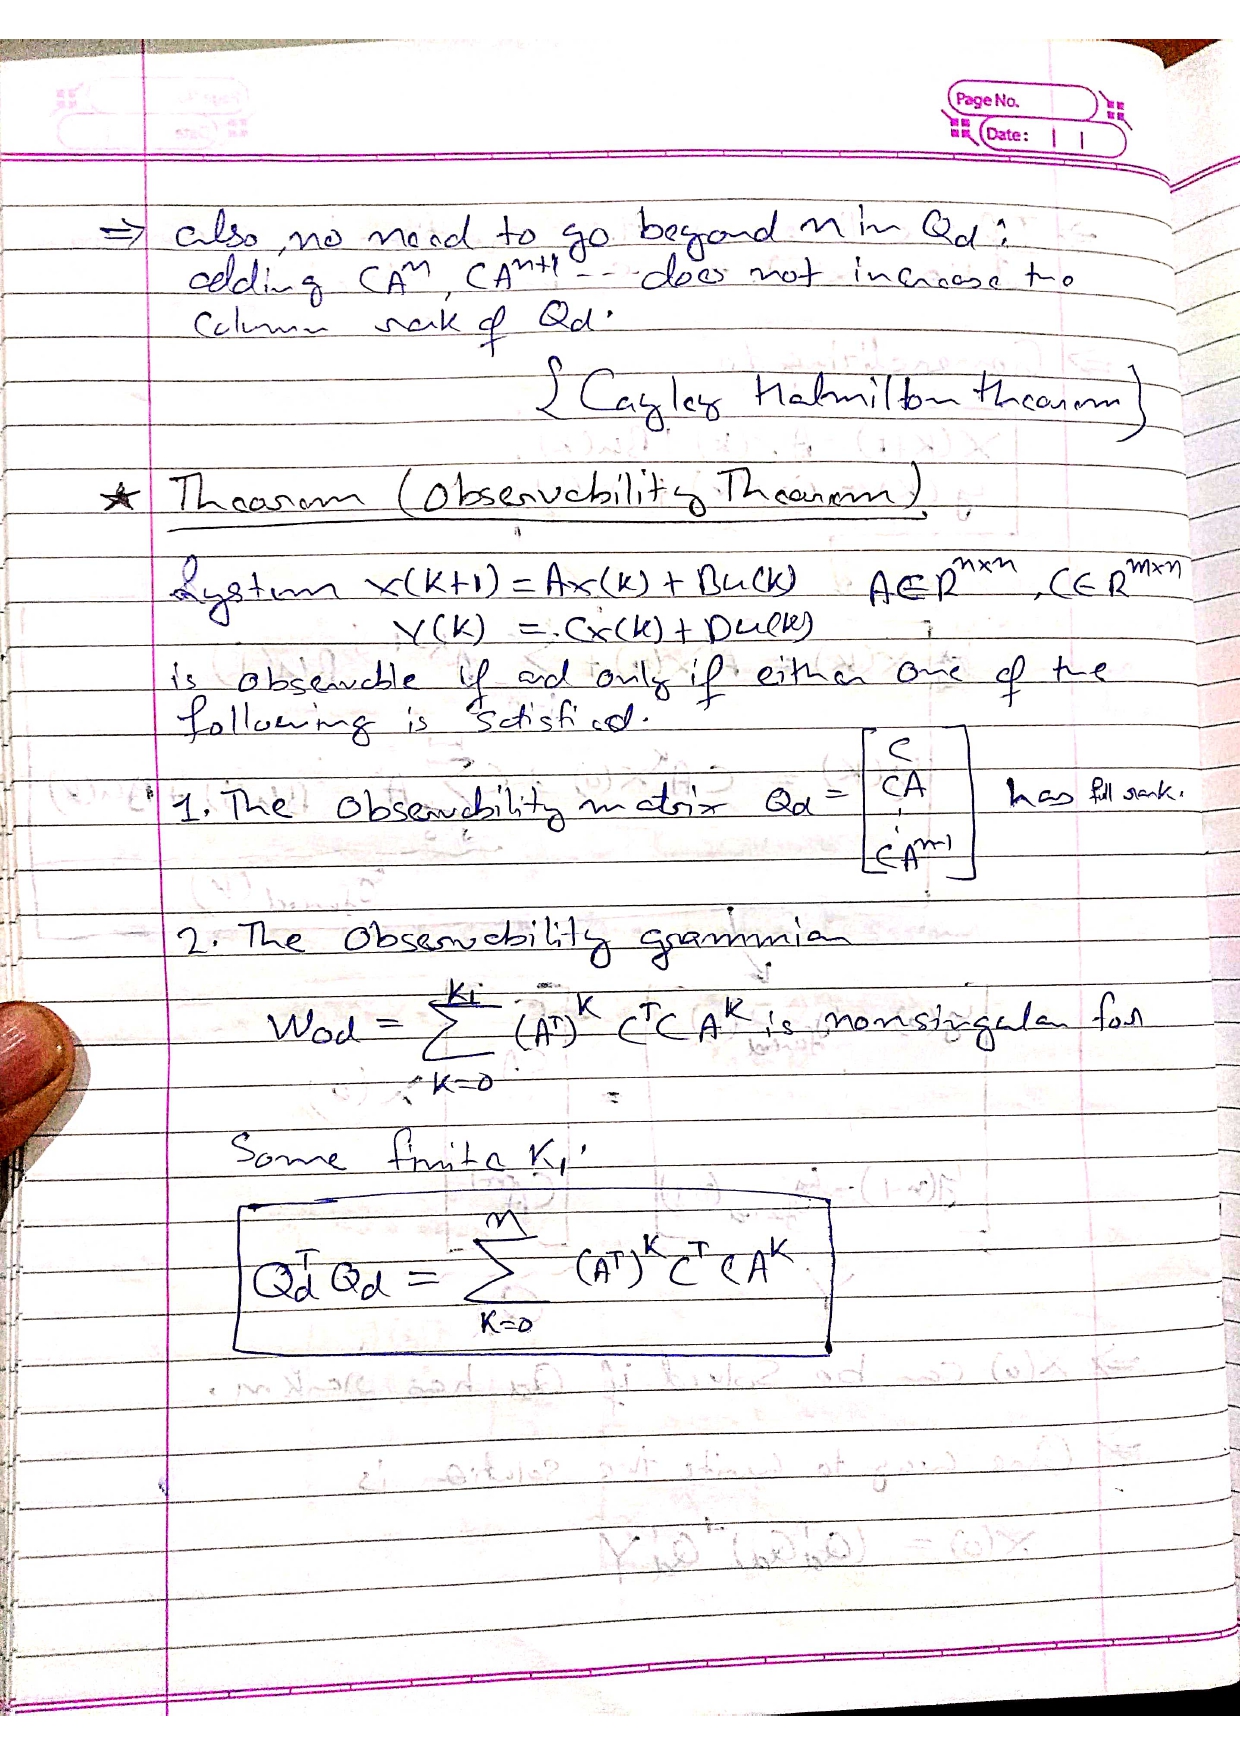 Page No.
Date: | |
⇒ also, no need to go beyond n in Qd:
adding CAⁿ, CAⁿ⁺¹ --- does not increase the
Column rank of Qd.
{Cayley Hatmilton thearem}
★ Thearem (Observability Thearem)
System x(k+1) = Ax(k) + Bu(k) A∈Rⁿˣⁿ, C∈Rᵐˣⁿ
Y(k) = Cx(k) + Du(k)
is observable if and only if either one of the
following is satisfied.
1. The observability matrix Qd = [C CA ⋮ CAⁿ⁻¹] has full rank.
2. The observability grammian
Wod = Σ_{K=0}^{K₁} (Aᵀ)ᴷ CᵀC Aᴷ is nonsingular for
Some finite K₁.
Qdᵀ Qd = Σ_{K=0}^{n} (Aᵀ)ᴷ Cᵀ C Aᴷ